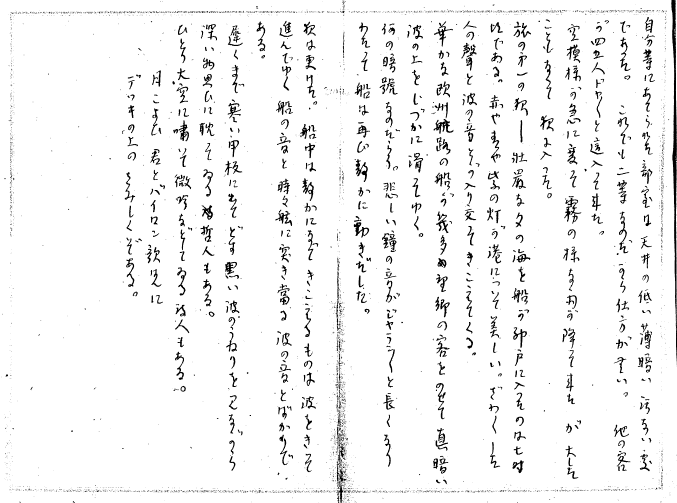 自分等にあてられた部室は天井の低い薄暗い汚ない處
であった。これでも二等なのだから仕方が無い。他の客
が四五人ドヤドヤと這入って来た。
空模様が急に変って霧の様な雨が降って来たが大した
こともなくて夜は入った。
旅の第一の夜――壮嚴な夕の海を船が神戸に入ったのは七時
頃である。赤や青や紫の灯が港につゞいて美しい。ざわざわした
人の聲と波の音とが入り交ってきこえてくる。
華かな欧州航路の船が幾多の望郷の客をのせて真暗い
波の上をしづかに滑ってゆく。
何の暗號なのだらう。悲しい鐘の音がジャランジャランと長くなり
わたって船は再び静かに動きだした。
夜は更けた。船中は静かになってきこえるものは波をきって
進んでゆく船の音と時々舷に突き當る波の音とばかりで
ある。
遅くまで寒い甲板に出てどす黒い波のうねりを見ながら
深い物思ひに耽ってゐる哲人もある。
ひとり大空に嘯いて微吟などしてゐる詩人もある。
月こよひ君とバイロン歌ふに
デッキの上のさみしくぞある。